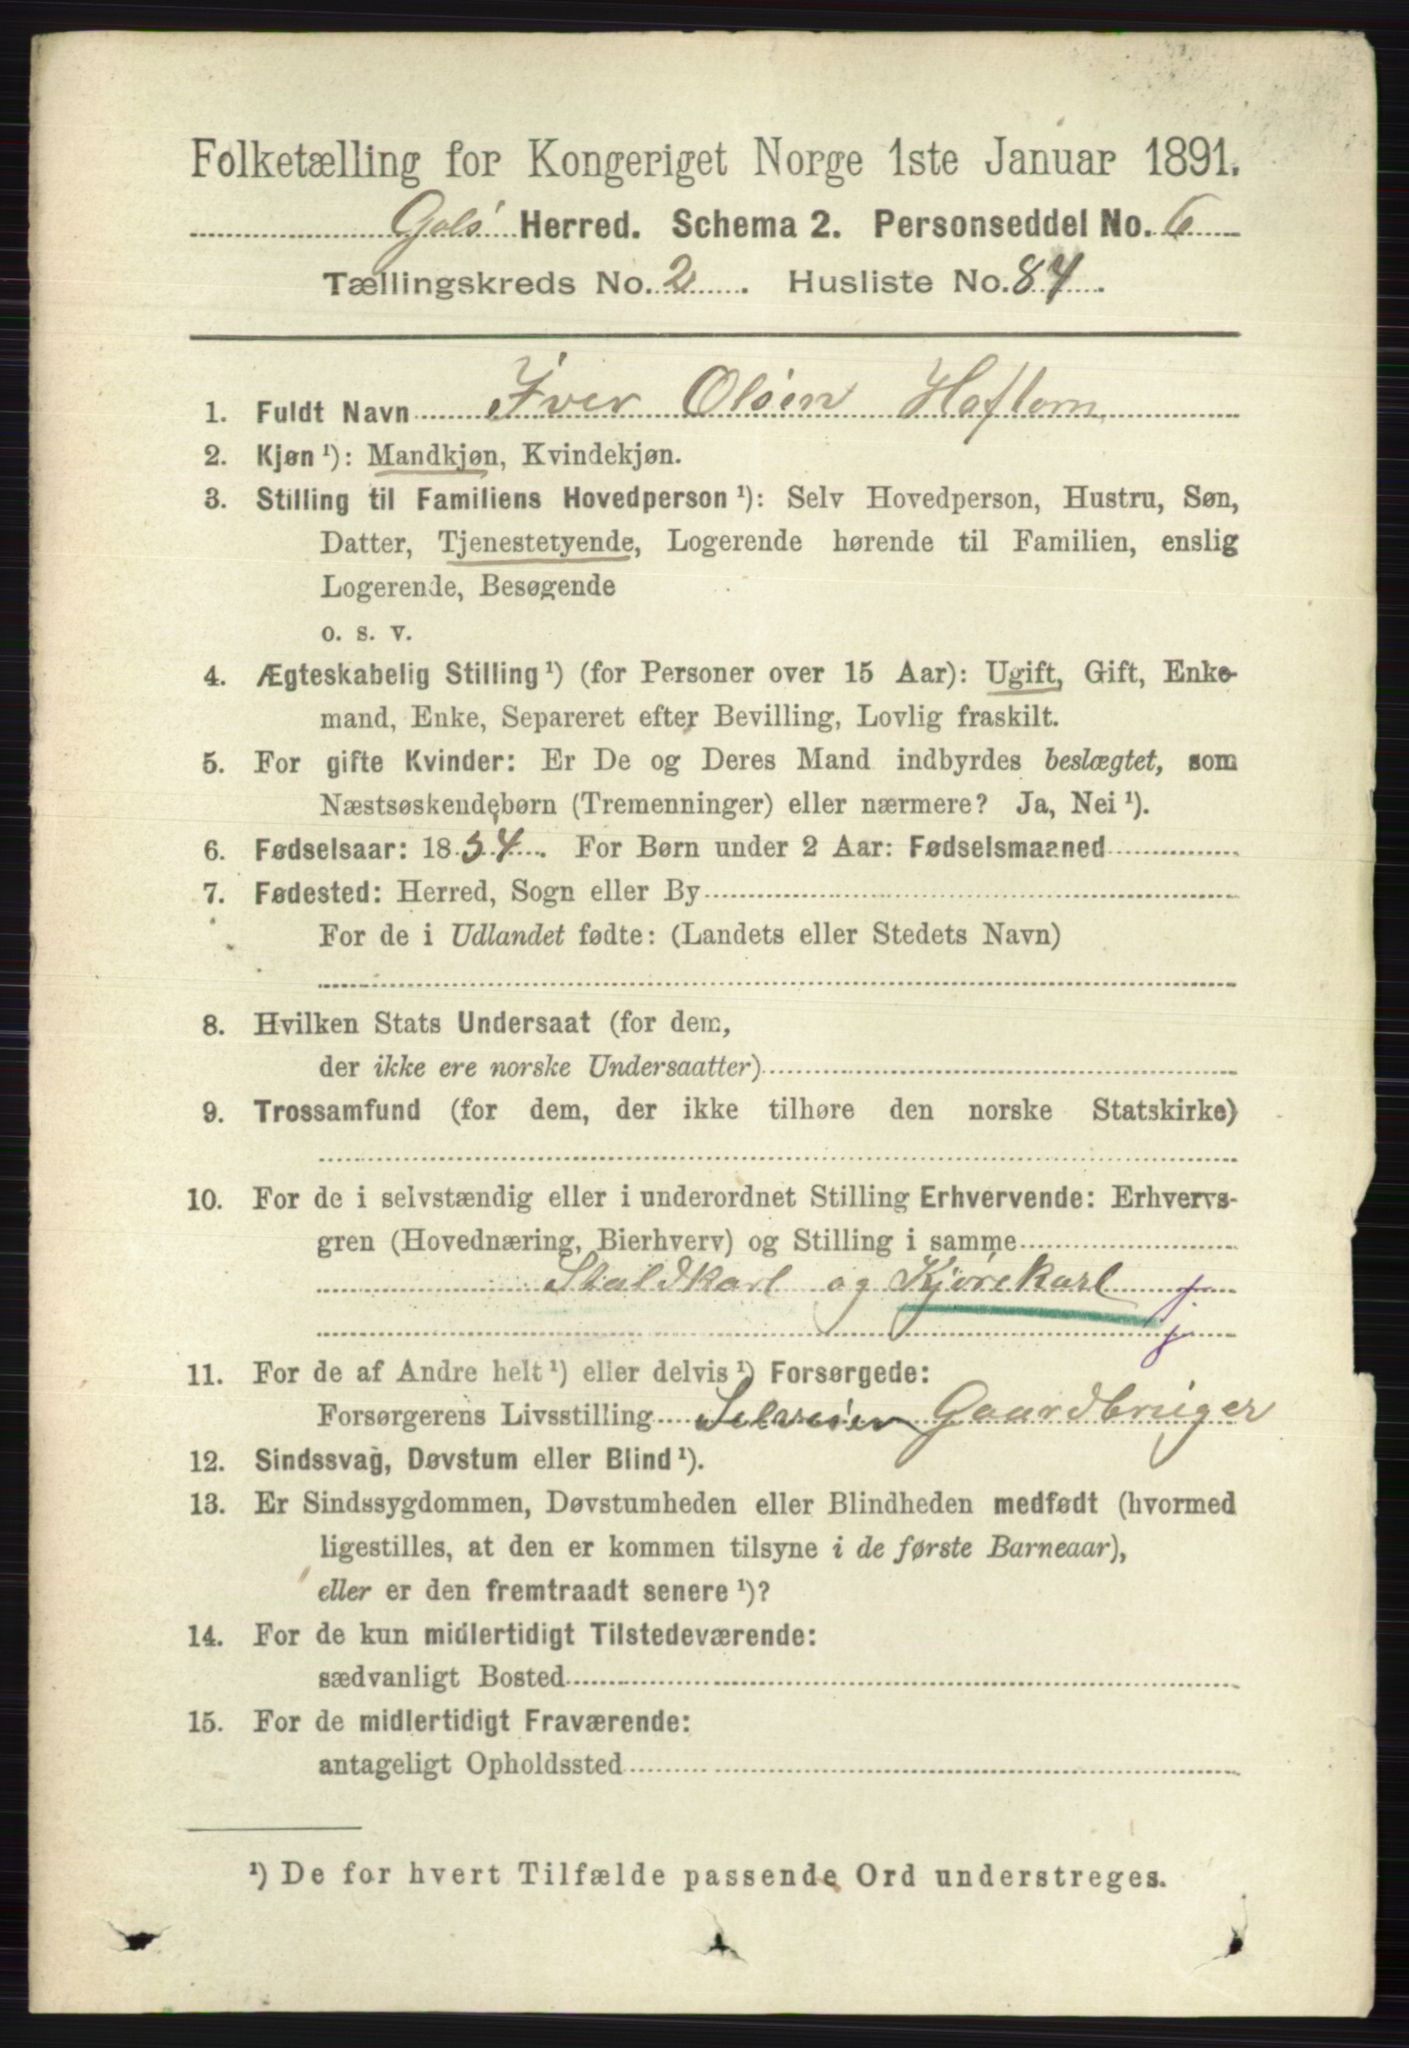 Folketælling for Kongeriget Norge 1ste Januar 1891.
Gols Herred. Schema 2. Personseddel No. 6
Tællingskreds No. 2. Husliste No. 84.
1. Fuldt Navn Iver Olsen Haftorn
2. Kjøn ¹): Mandkjøn, Kvindekjøn.
3. Stilling til Familiens Hovedperson ¹): Selv Hovedperson, Hustru, Søn,
Datter, Tjenestetyende, Logerende hørende til Familien, enslig
Logerende, Besøgende
o. s. v.
4. Ægteskabelig Stilling ¹) (for Personer over 15 Aar): Ugift, Gift, Enke-
mand, Enke, Separeret efter Bevilling, Lovlig fraskilt.
5. For gifte Kvinder: Er De og Deres Mand indbyrdes beslægtet, som
Næstsøskendebørn (Tremenninger) eller nærmere? Ja, Nei ¹).
6. Fødselsaar: 1834. For Børn under 2 Aar: Fødselsmaaned
7. Fødested: Herred, Sogn eller By
For de i Udlandet fødte: (Landets eller Stedets Navn)
8. Hvilken Stats Undersaat (for dem,
der ikke ere norske Undersaatter)
9. Trossamfund (for dem, der ikke tilhøre den norske Statskirke)
10. For de i selvstændig eller i underordnet Stilling Erhvervende: Erhvervs-
gren (Hovednæring, Bierhverv) og Stilling i samme
Staldkarl og Kjørekarl j.
j.
11. For de af Andre helt ¹) eller delvis ¹) Forsørgede:
Forsørgerens Livsstilling Gaardbruger
12. Sindssvag, Døvstum eller Blind ¹).
13. Er Sindssygdommen, Døvstumheden eller Blindheden medfødt (hvormed
ligestilles, at den er kommen tilsyne i de første Barneaar),
eller er den fremtraadt senere ¹)?
14. For de kun midlertidigt Tilstedeværende:
sædvanligt Bosted
15. For de midlertidigt Fraværende:
antageligt Opholdssted
¹) De for hvert Tilfælde passende Ord understreges.